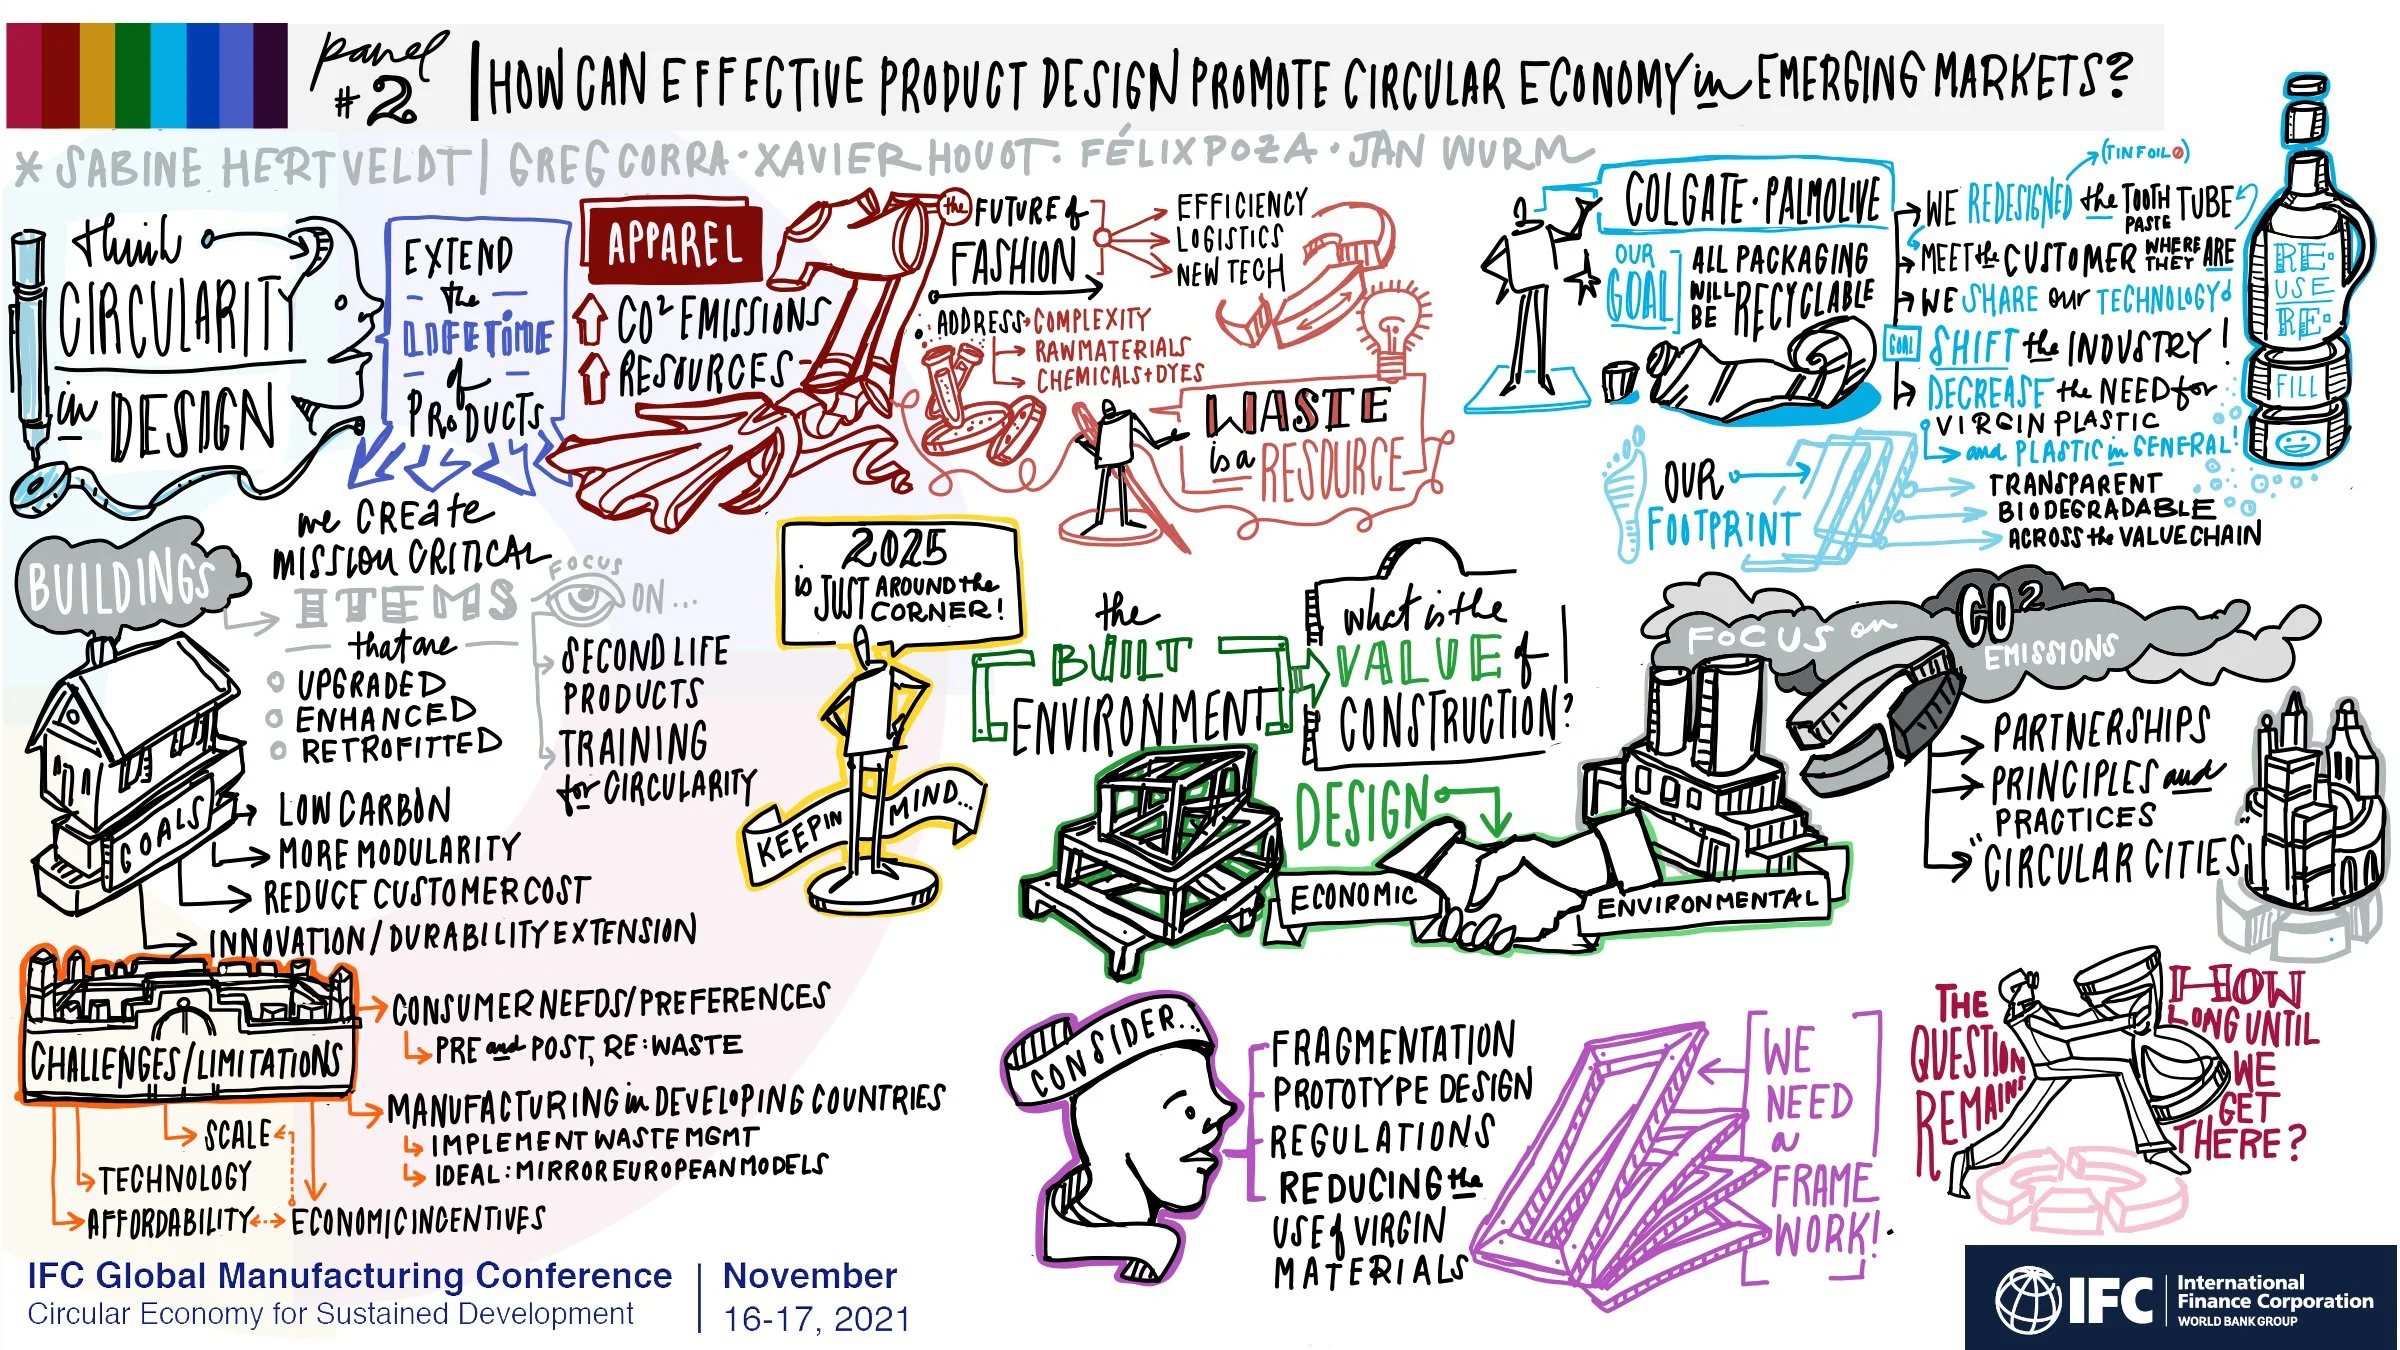 Panel #2
HOW CAN EFFECTIVE PRODUCT DESIGN PROMOTE CIRCULAR ECONOMY in EMERGING MARKETS?
* SABINE HERTVELDT | GREG CORRA · XAVIER HOUOT · FÉLIX POZA · JAN WURM
think
CIRCULARITY
in DESIGN
EXTEND
the
LIFETIME
of
PRODUCTS
APPAREL
CO2 EMISSIONS
RESOURCES
the FUTURE of
FASHION
EFFICIENCY
LOGISTICS
NEW TECH
ADDRESS
COMPLEXITY
RAW MATERIALS
CHEMICALS + DYES
WASTE
is a RESOURCE
COLGATE · PALMOLIVE
OUR
GOAL
ALL PACKAGING
WILL BE RECYCLABLE
(TINFOIL)
WE REDESIGNED the TOOTH PASTE TUBE
MEET the CUSTOMER WHERE THEY ARE
WE SHARE our TECHNOLOGY
GOAL
SHIFT the INDUSTRY!
DECREASE the NEED for
VIRGIN PLASTIC
and PLASTIC in GENERAL!
RE·
USE
RE·
FILL
OUR
FOOTPRINT
TRANSPARENT
BIODEGRADABLE
ACROSS the VALUE CHAIN
BUILDINGS
we CREATE
MISSION CRITICAL
ITEMS
that are
UPGRADED
ENHANCED
RETROFITTED
FOCUS
ON...
SECOND LIFE
PRODUCTS
TRAINING
for CIRCULARITY
GOALS
LOW CARBON
MORE MODULARITY
REDUCE CUSTOMER COST
INNOVATION/DURABILITY EXTENSION
2025
is JUST AROUND the
CORNER!
KEEP IN MIND...
the
BUILT
ENVIRONMENT
what is the
VALUE of
CONSTRUCTION?
DESIGN
ECONOMIC
ENVIRONMENTAL
FOCUS on CO2
EMISSIONS
PARTNERSHIPS
PRINCIPLES and
PRACTICES
"CIRCULAR CITIES"
CHALLENGES/LIMITATIONS
CONSUMER NEEDS/PREFERENCES
PRE and POST, RE: WASTE
MANUFACTURING in DEVELOPING COUNTRIES
IMPLEMENT WASTE MGMT
IDEAL: MIRROR EUROPEAN MODELS
SCALE
TECHNOLOGY
AFFORDABILITY
ECONOMIC INCENTIVES
CONSIDER...
FRAGMENTATION
PROTOTYPE DESIGN
REGULATIONS
REDUCING the
USE of VIRGIN
MATERIALS
WE
NEED
a
FRAME
WORK!
THE
QUESTION
REMAINS
HOW
LONG UNTIL
WE
GET
THERE?
IFC Global Manufacturing Conference
Circular Economy for Sustained Development
November
16-17, 2021
IFC
International
Finance Corporation
WORLD BANK GROUP